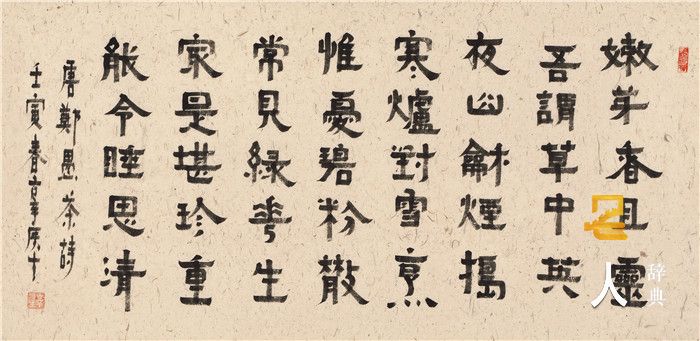 嫩芽香且靈
吾謂草中英
夜臼龢煙搗
寒爐對雪烹
惟憂碧粉散
常見綠花生
家是堪珍重
能令睡思清
唐鄭愚茶詩
壬寅春
人 辞典